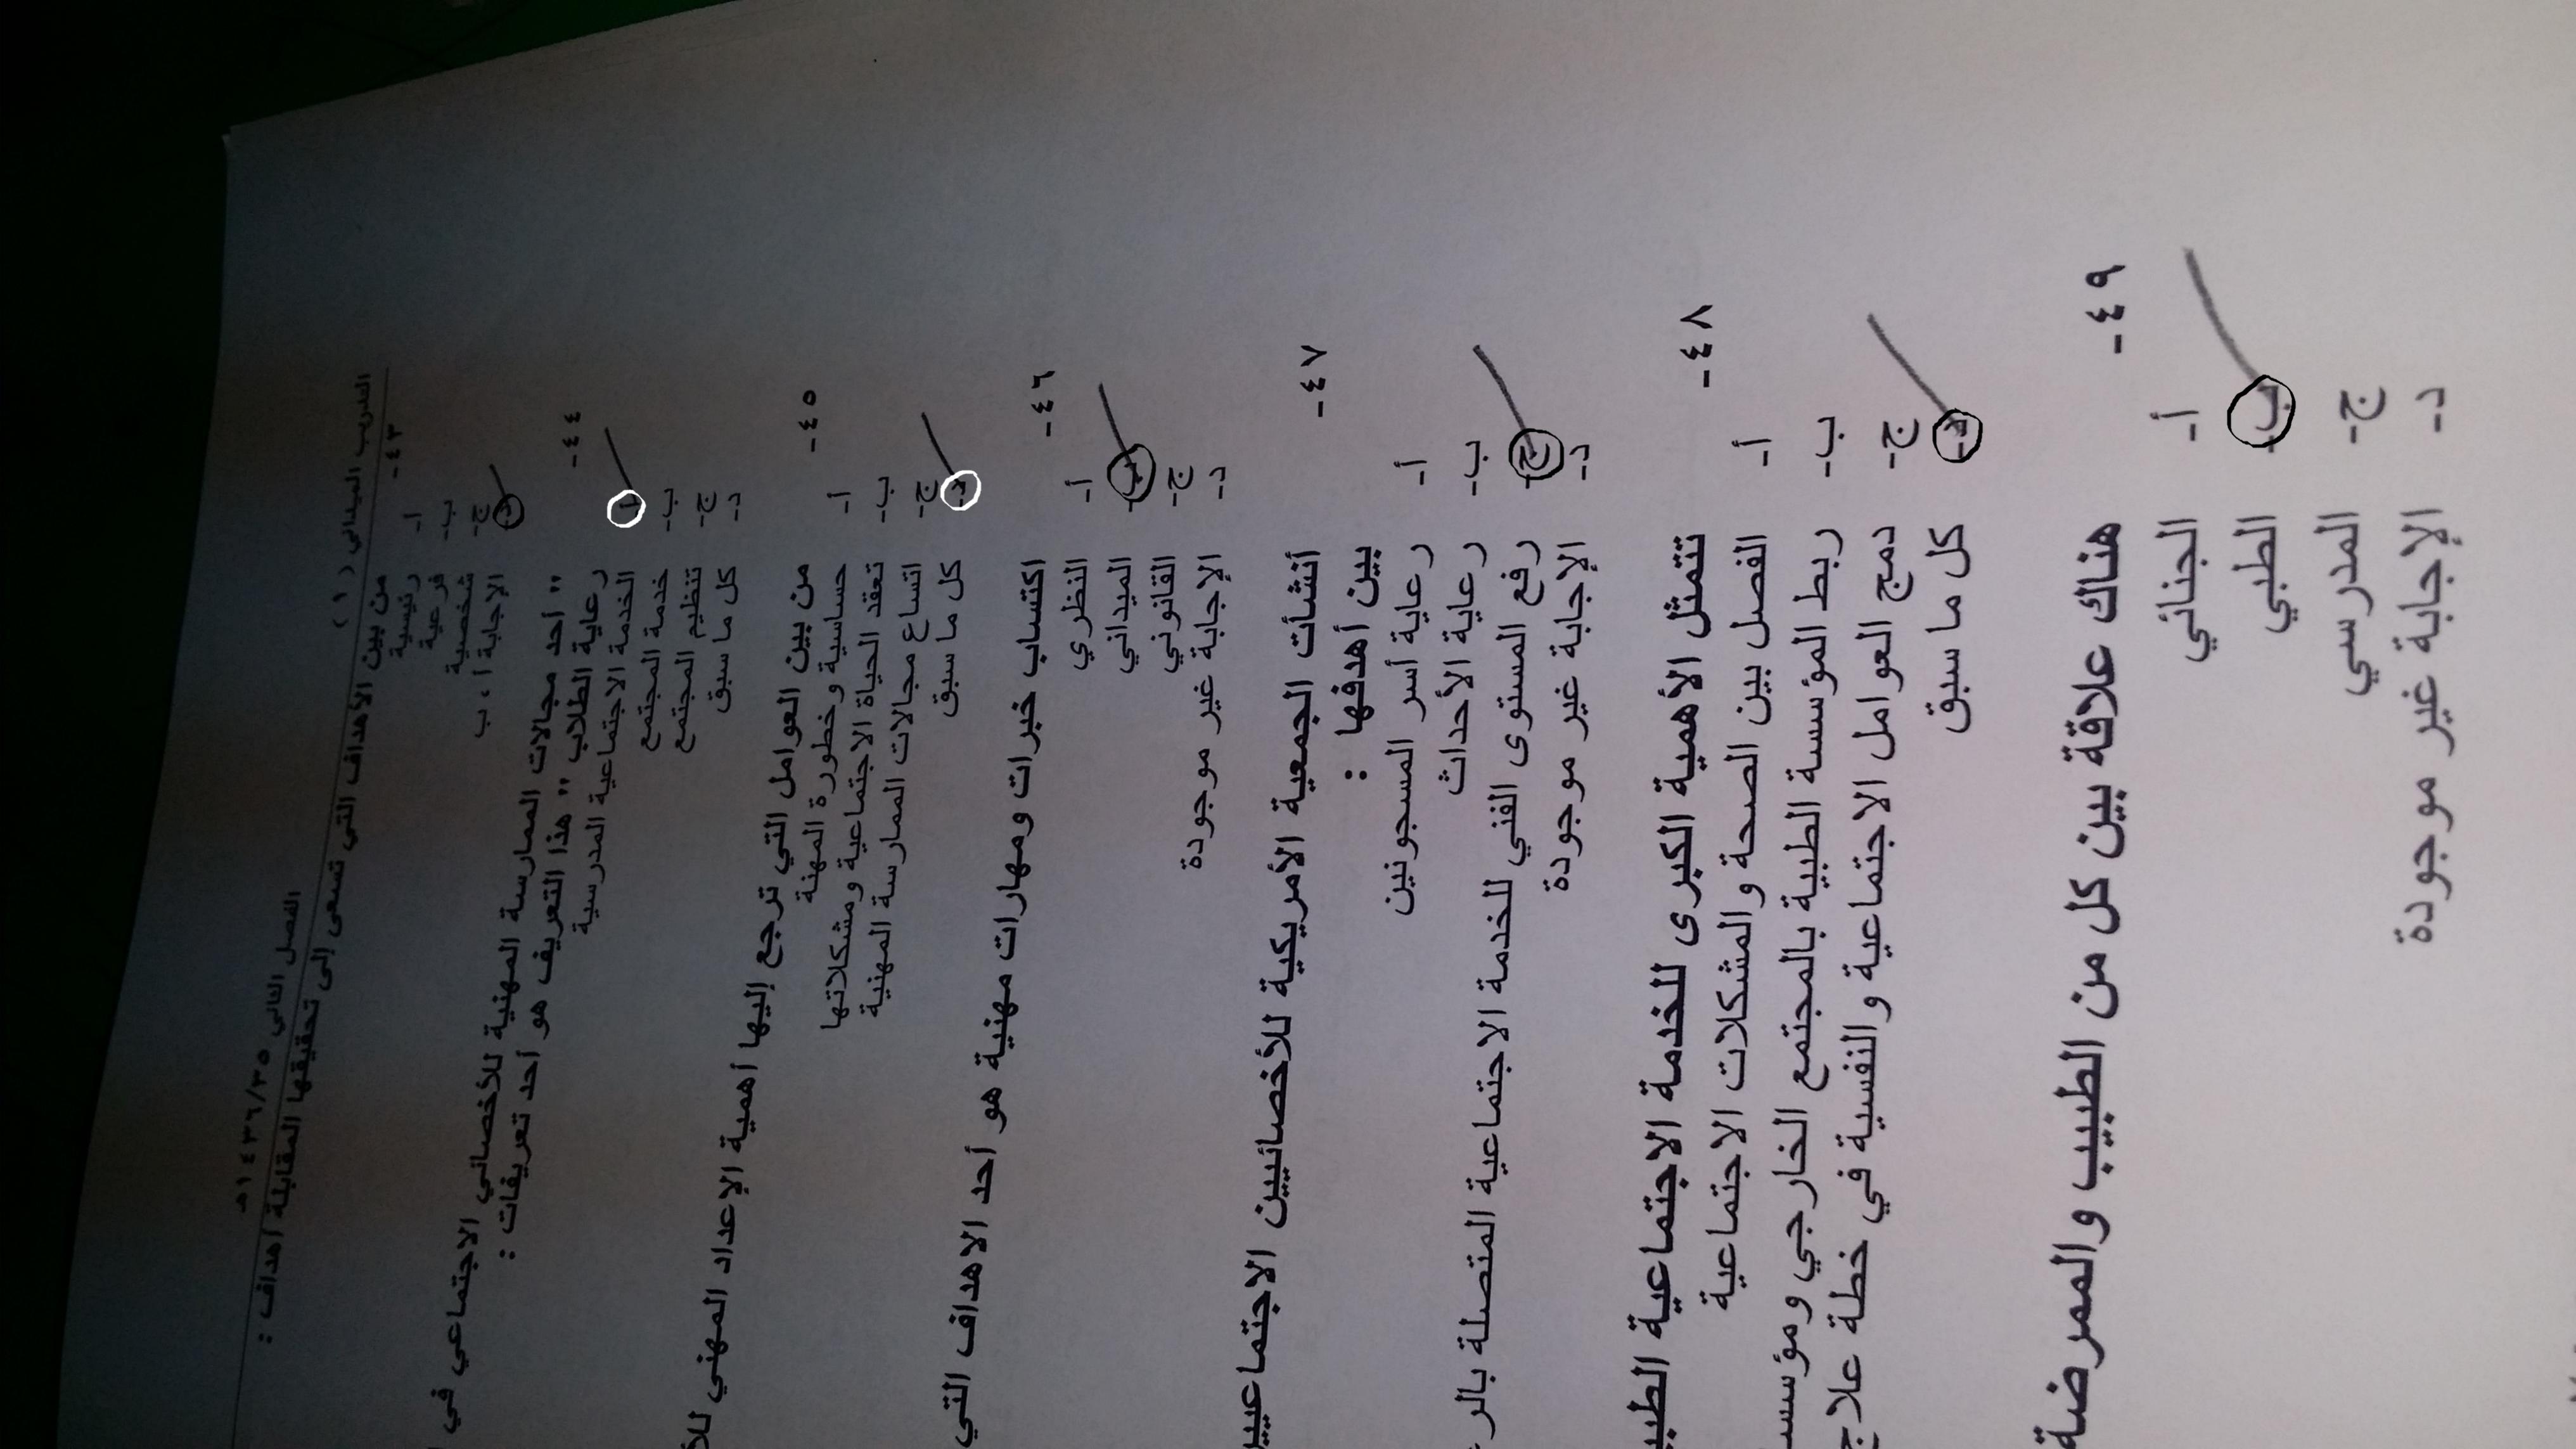 التدريب الميداني ( ١ )
الفصل الثاني ١٤٣٦/٣٥هـ
٤٣- من بين الأهداف التي تسعى إلى تحقيقها المقابلة أهداف :
أ- رئيسية
ب- فرعية
ج- شخصية
د- الإجابة أ ، ب
٤٤- " أحد مجالات الممارسة المهنية للأخصائي الاجتماعي في
رعاية الطلاب " هذا التعريف هو أحد تعريفات :
أ- الخدمة الاجتماعية المدرسية
ب- خدمة المجتمع
ج- تنظيم المجتمع
د- كل ما سبق
٤٥- من بين العوامل التي ترجع إليها أهمية الإعداد المهني
أ- حساسية وخطورة المهنة
ب- تعقد الحياة الاجتماعية ومشكلاتها
ج- اتساع مجالات الممارسة المهنية
د- كل ما سبق
٤٦- اكتساب خبرات ومهارات مهنية هو أحد الاهداف التي
أ- النظري
ب- الميداني
ج- القانوني
د- الإجابة غير موجودة
٤٧- أنشأت الجمعية الأمريكية للأخصائيين الاجتماعيين
بين أهدفها :
أ- رعاية أسر المسجونين
ب- رعاية الأحداث
ج- رفع المستوى الفني للخدمة الاجتماعية المتصلة
د- الإجابة غير موجودة
٤٨- تتمثل الأهمية الكبرى للخدمة الاجتماعية
أ- الفصل بين الصحة والمشكلات الاجتماعية
ب- ربط المؤسسة الطبية بالمجتمع الخارجي
ج- دمج العوامل الاجتماعية والنفسية في خطة
د- كل ما سبق
٤٩- هناك علاقة بين كل من الطبيب والممرضة
أ- الجنائي
ب- الطبي
ج- المدرسي
د- الإجابة غير موجودة